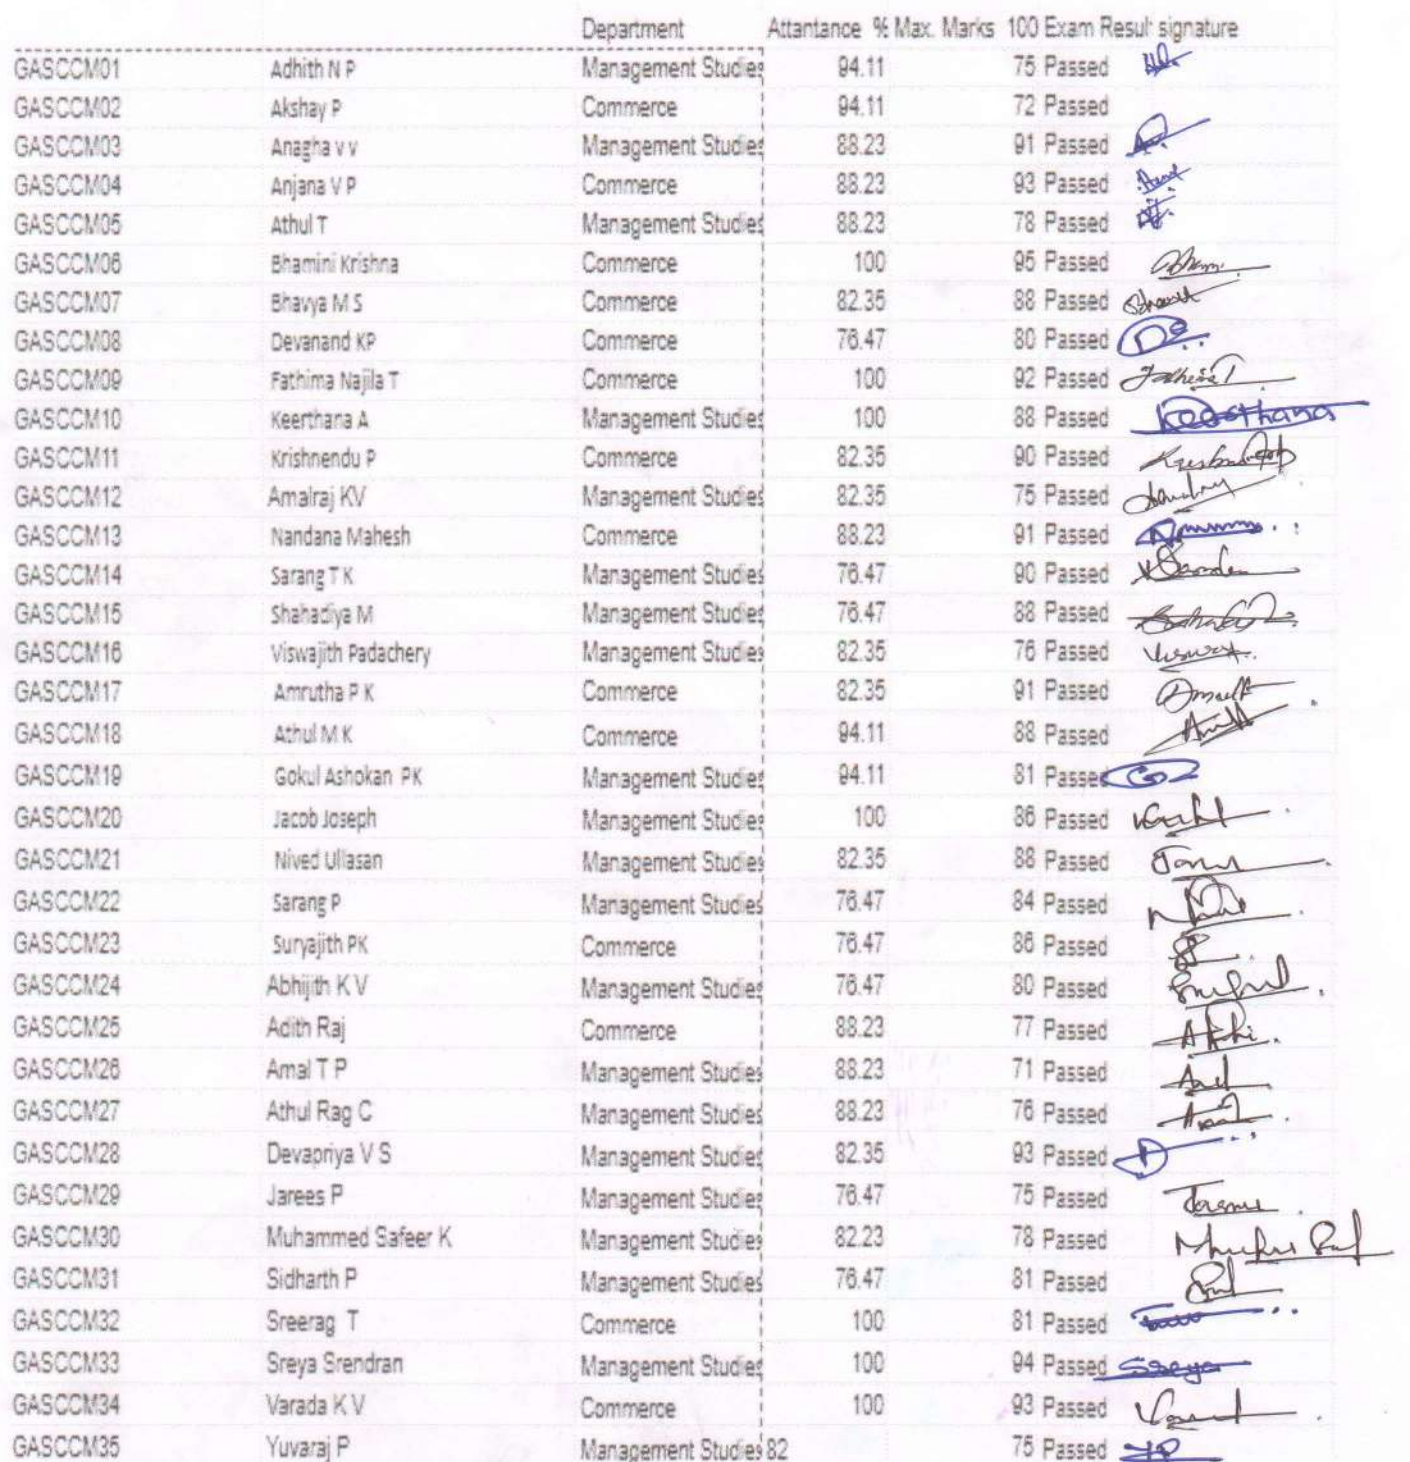 Department Attantance % Max. Marks 100 Exam Resul signature
GASCCM01 Adhith N P Management Studies 94.11 75 Passed
GASCCM02 Akshay P Commerce 94.11 72 Passed
GASCCM03 Anagha v v Management Studies 88.23 91 Passed
GASCCM04 Anjana V P Commerce 88.23 93 Passed
GASCCM05 Athul T Management Studies 88.23 78 Passed
GASCCM06 Bhamini Krishna Commerce 100 95 Passed
GASCCM07 Bhavya M S Commerce 82.35 88 Passed
GASCCM08 Devanand KP Commerce 76.47 80 Passed
GASCCM09 Fathima Najila T Commerce 100 92 Passed
GASCCM10 Keerthana A Management Studies 100 88 Passed Keerthana
GASCCM11 Krishnendu P Commerce 82.35 90 Passed
GASCCM12 Amalraj KV Management Studies 82.35 75 Passed
GASCCM13 Nandana Mahesh Commerce 88.23 91 Passed
GASCCM14 Sarang T K Management Studies 76.47 90 Passed
GASCCM15 Shahadiya M Management Studies 76.47 88 Passed
GASCCM16 Viswajith Padachery Management Studies 82.35 76 Passed
GASCCM17 Amrutha P K Commerce 82.35 91 Passed
GASCCM18 Athul M K Commerce 94.11 88 Passed
GASCCM19 Gokul Ashokan PK Management Studies 94.11 81 Passed
GASCCM20 Jacob Joseph Management Studies 100 86 Passed
GASCCM21 Nived Ullasan Management Studies 82.35 88 Passed
GASCCM22 Sarang P Management Studies 76.47 84 Passed
GASCCM23 Suryajith PK Commerce 76.47 86 Passed
GASCCM24 Abhijith K V Management Studies 76.47 80 Passed
GASCCM25 Adith Raj Commerce 88.23 77 Passed
GASCCM26 Amal T P Management Studies 88.23 71 Passed
GASCCM27 Athul Rag C Management Studies 88.23 76 Passed
GASCCM28 Devapriya V S Management Studies 82.35 93 Passed
GASCCM29 Jarees P Management Studies 76.47 75 Passed
GASCCM30 Muhammed Safeer K Management Studies 82.23 78 Passed
GASCCM31 Sidharth P Management Studies 76.47 81 Passed
GASCCM32 Sreerag T Commerce 100 81 Passed
GASCCM33 Sreya Srendran Management Studies 100 94 Passed Sreya
GASCCM34 Varada K V Commerce 100 93 Passed
GASCCM35 Yuvaraj P Management Studies 82 75 Passed